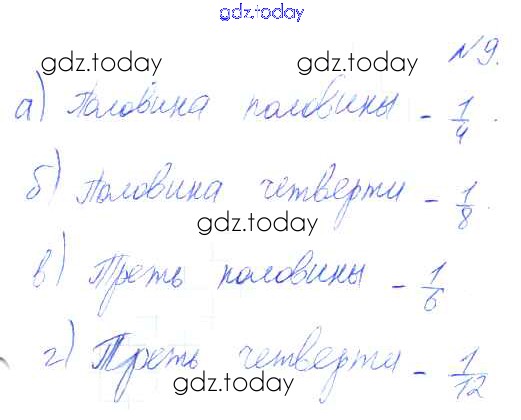 gdz.today
№9.
gdz.today gdz.today
а) Половина половины - 1/4.
б) Половина четверти - 1/8.
gdz.today
в) Треть половины - 1/6
г) Треть четверти - 1/12
gdz.today